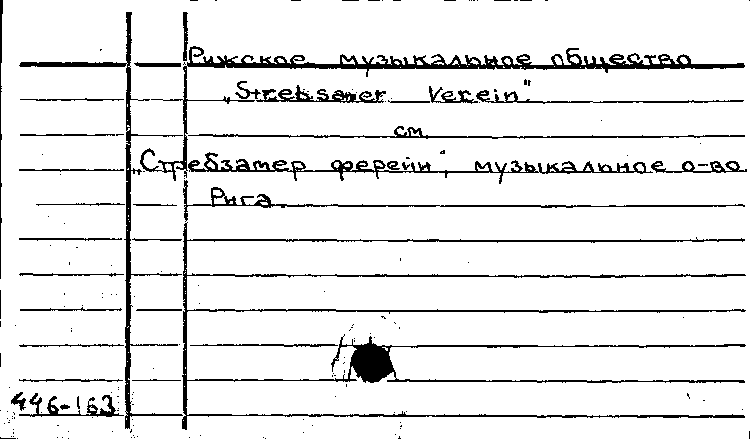 Рижское музыкальное общество
„Strebsamer Verein".
см.
„Стребзамер ферейн", музыкальное о-во
Рига.
446-163